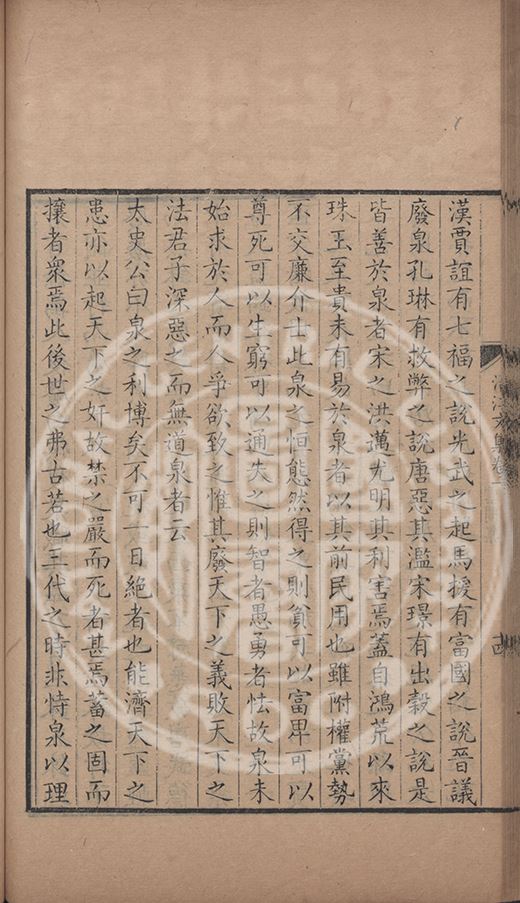 漢賈誼有七福之說光武之起馬援有富國之說晉議
廢泉孔琳有救弊之說唐惡其濫宋璟有出穀之說是
皆善於泉者宋之洪邁尤明其利害焉蓋自鴻荒以來
珠玉至貴未有易於泉者以其前民用也雖附權黨勢
不交廉介士此泉之恒態然得之則貧可以富卑可以
尊死可以生窮可以通失之則智者愚勇者怯故泉未
始求於人而人爭欲致之惟其廢天下之義敗天下之
法君子深惡之而無道泉者云
太史公曰泉之利博矣不可一日絕者也能濟天下之
患亦以起天下之奸故禁之嚴而死者甚焉蓄之固而
攘者衆焉此後世之弗古若也三代之時非恃泉以理